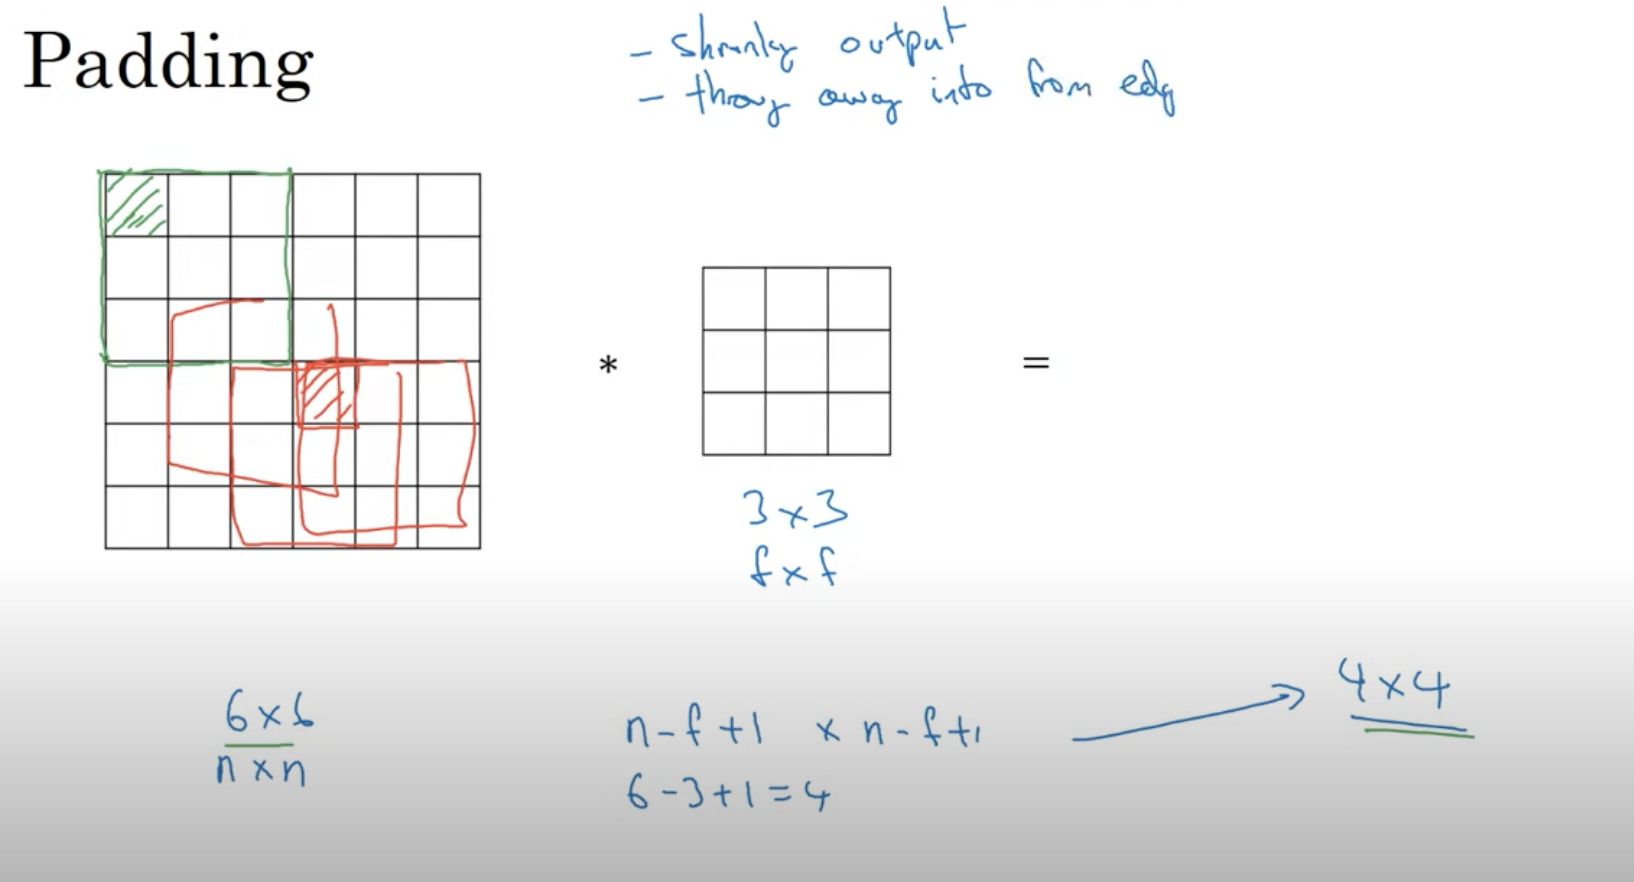 Padding
- shrinky output
- throwy away info from edg
*
=
3 x 3
f x f
6 x 6
n x n
n - f + 1 x n - f + 1
6 - 3 + 1 = 4
4 x 4